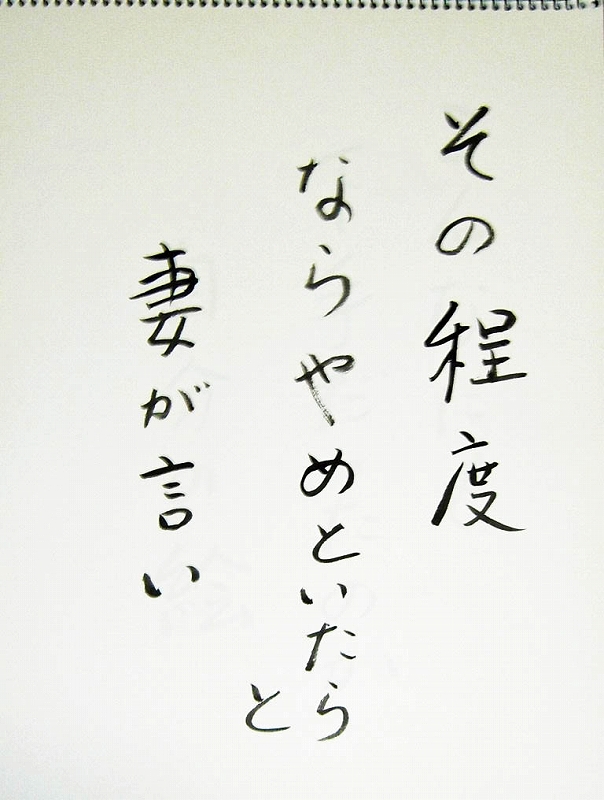 その程度
ならやめといたら
と
妻が言い